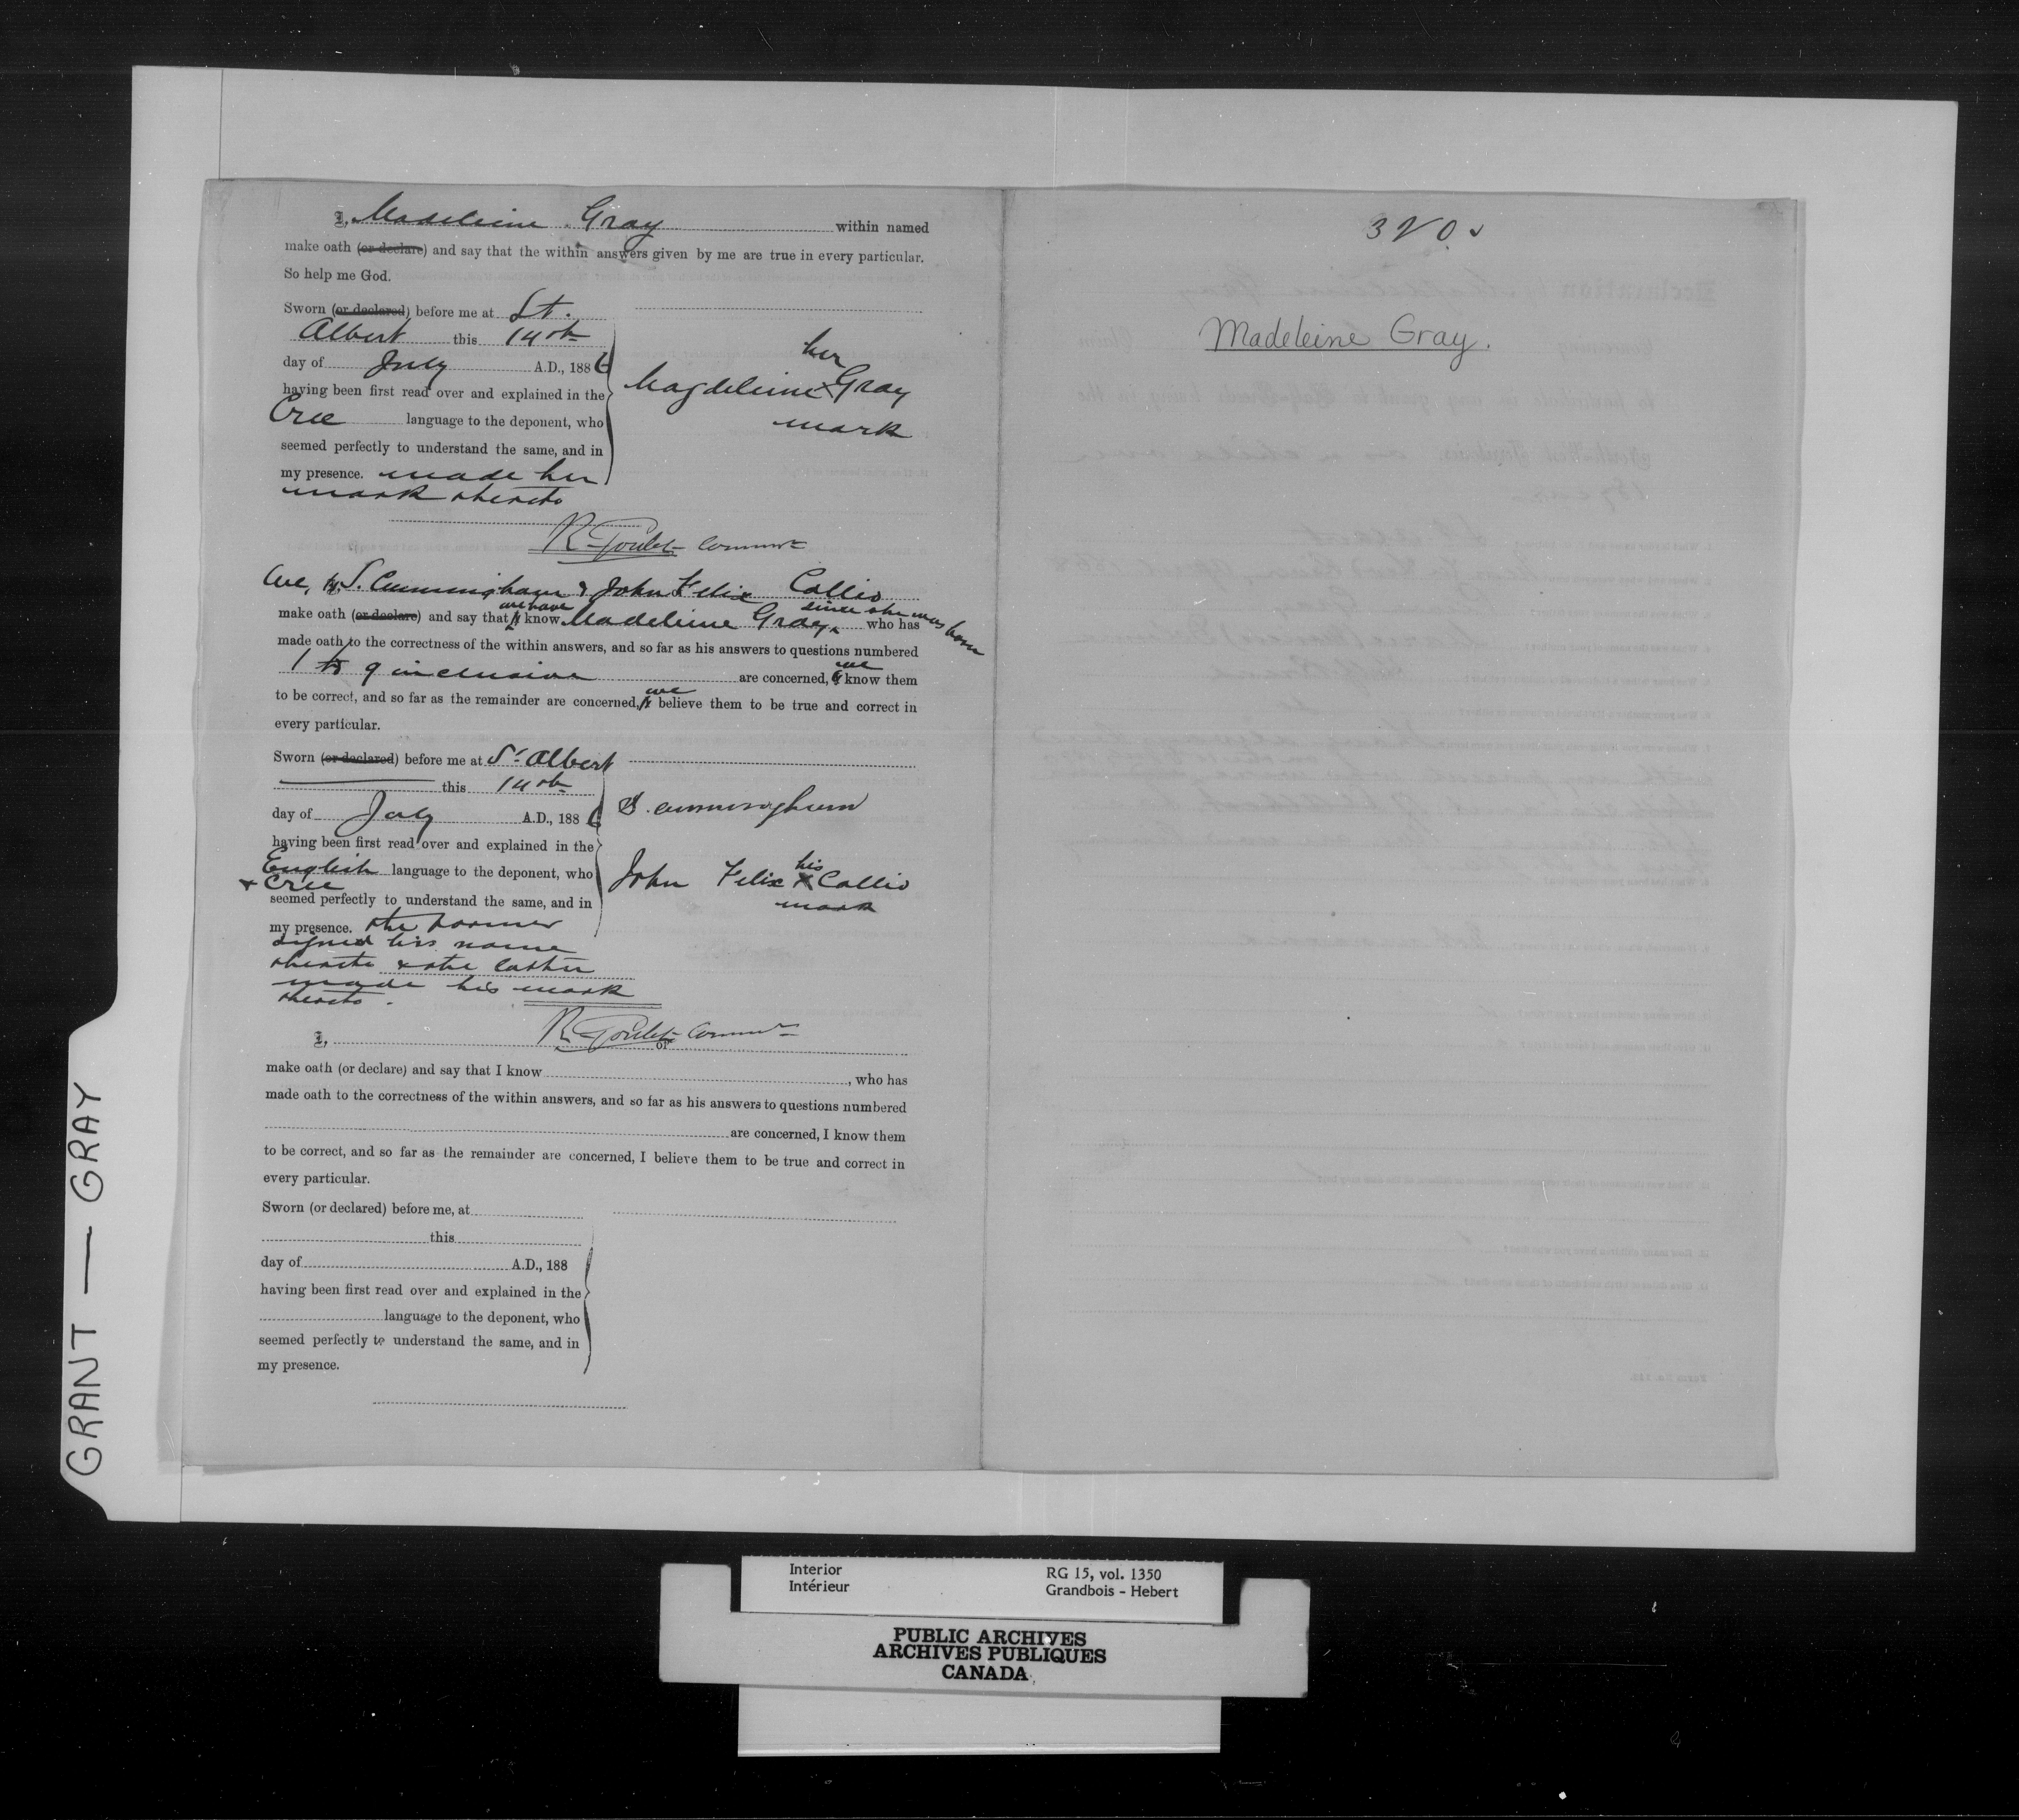 I, Madeleine Gray within named
make oath (or declare) and say that the within answers given by me are true in every particular.
So help me God.
Sworn (or declared) before me at St.
Albert this 14th
day of July A.D., 1886
having been first read over and explained in the
Cree language to the deponent, who
seemed perfectly to understand the same, and in
my presence. made her
mark thereto
her
Magdeleine x Gray
mark
R. Goulet Commr
We, S. Cunningham & John Felix Callio
we have since she was born
make oath (or declare) and say that I know Madeleine Gray, who has
made oath to the correctness of the within answers, and so far as his answers to questions numbered
1 to 9 inclusive are concerned, we know them
to be correct, and so far as the remainder are concerned, we believe them to be true and correct in
every particular.
Sworn (or declared) before me at St Albert
this 14th
day of July A.D., 1886
having been first read over and explained in the
English language to the deponent, who
& Cree
seemed perfectly to understand the same, and in
my presence. the former
signed his name
thereto & the latter
made his mark
thereto.
S. cunningham
his
John Felix X Callio
mark
R. Goulet Commr
I, or
make oath (or declare) and say that I know , who has
made oath to the correctness of the within answers, and so far as his answers to questions numbered
are concerned, I know them
to be correct, and so far as the remainder are concerned, I believe them to be true and correct in
every particular.
Sworn (or declared) before me, at
this
day of A.D., 188
having been first read over and explained in the
language to the deponent, who
seemed perfectly to understand the same, and in
my presence.
320.
Madeleine Gray.
GRANT — GRAY
Interior
Intérieur
RG 15, vol. 1350
Grandbois - Hebert
PUBLIC ARCHIVES
ARCHIVES PUBLIQUES
CANADA